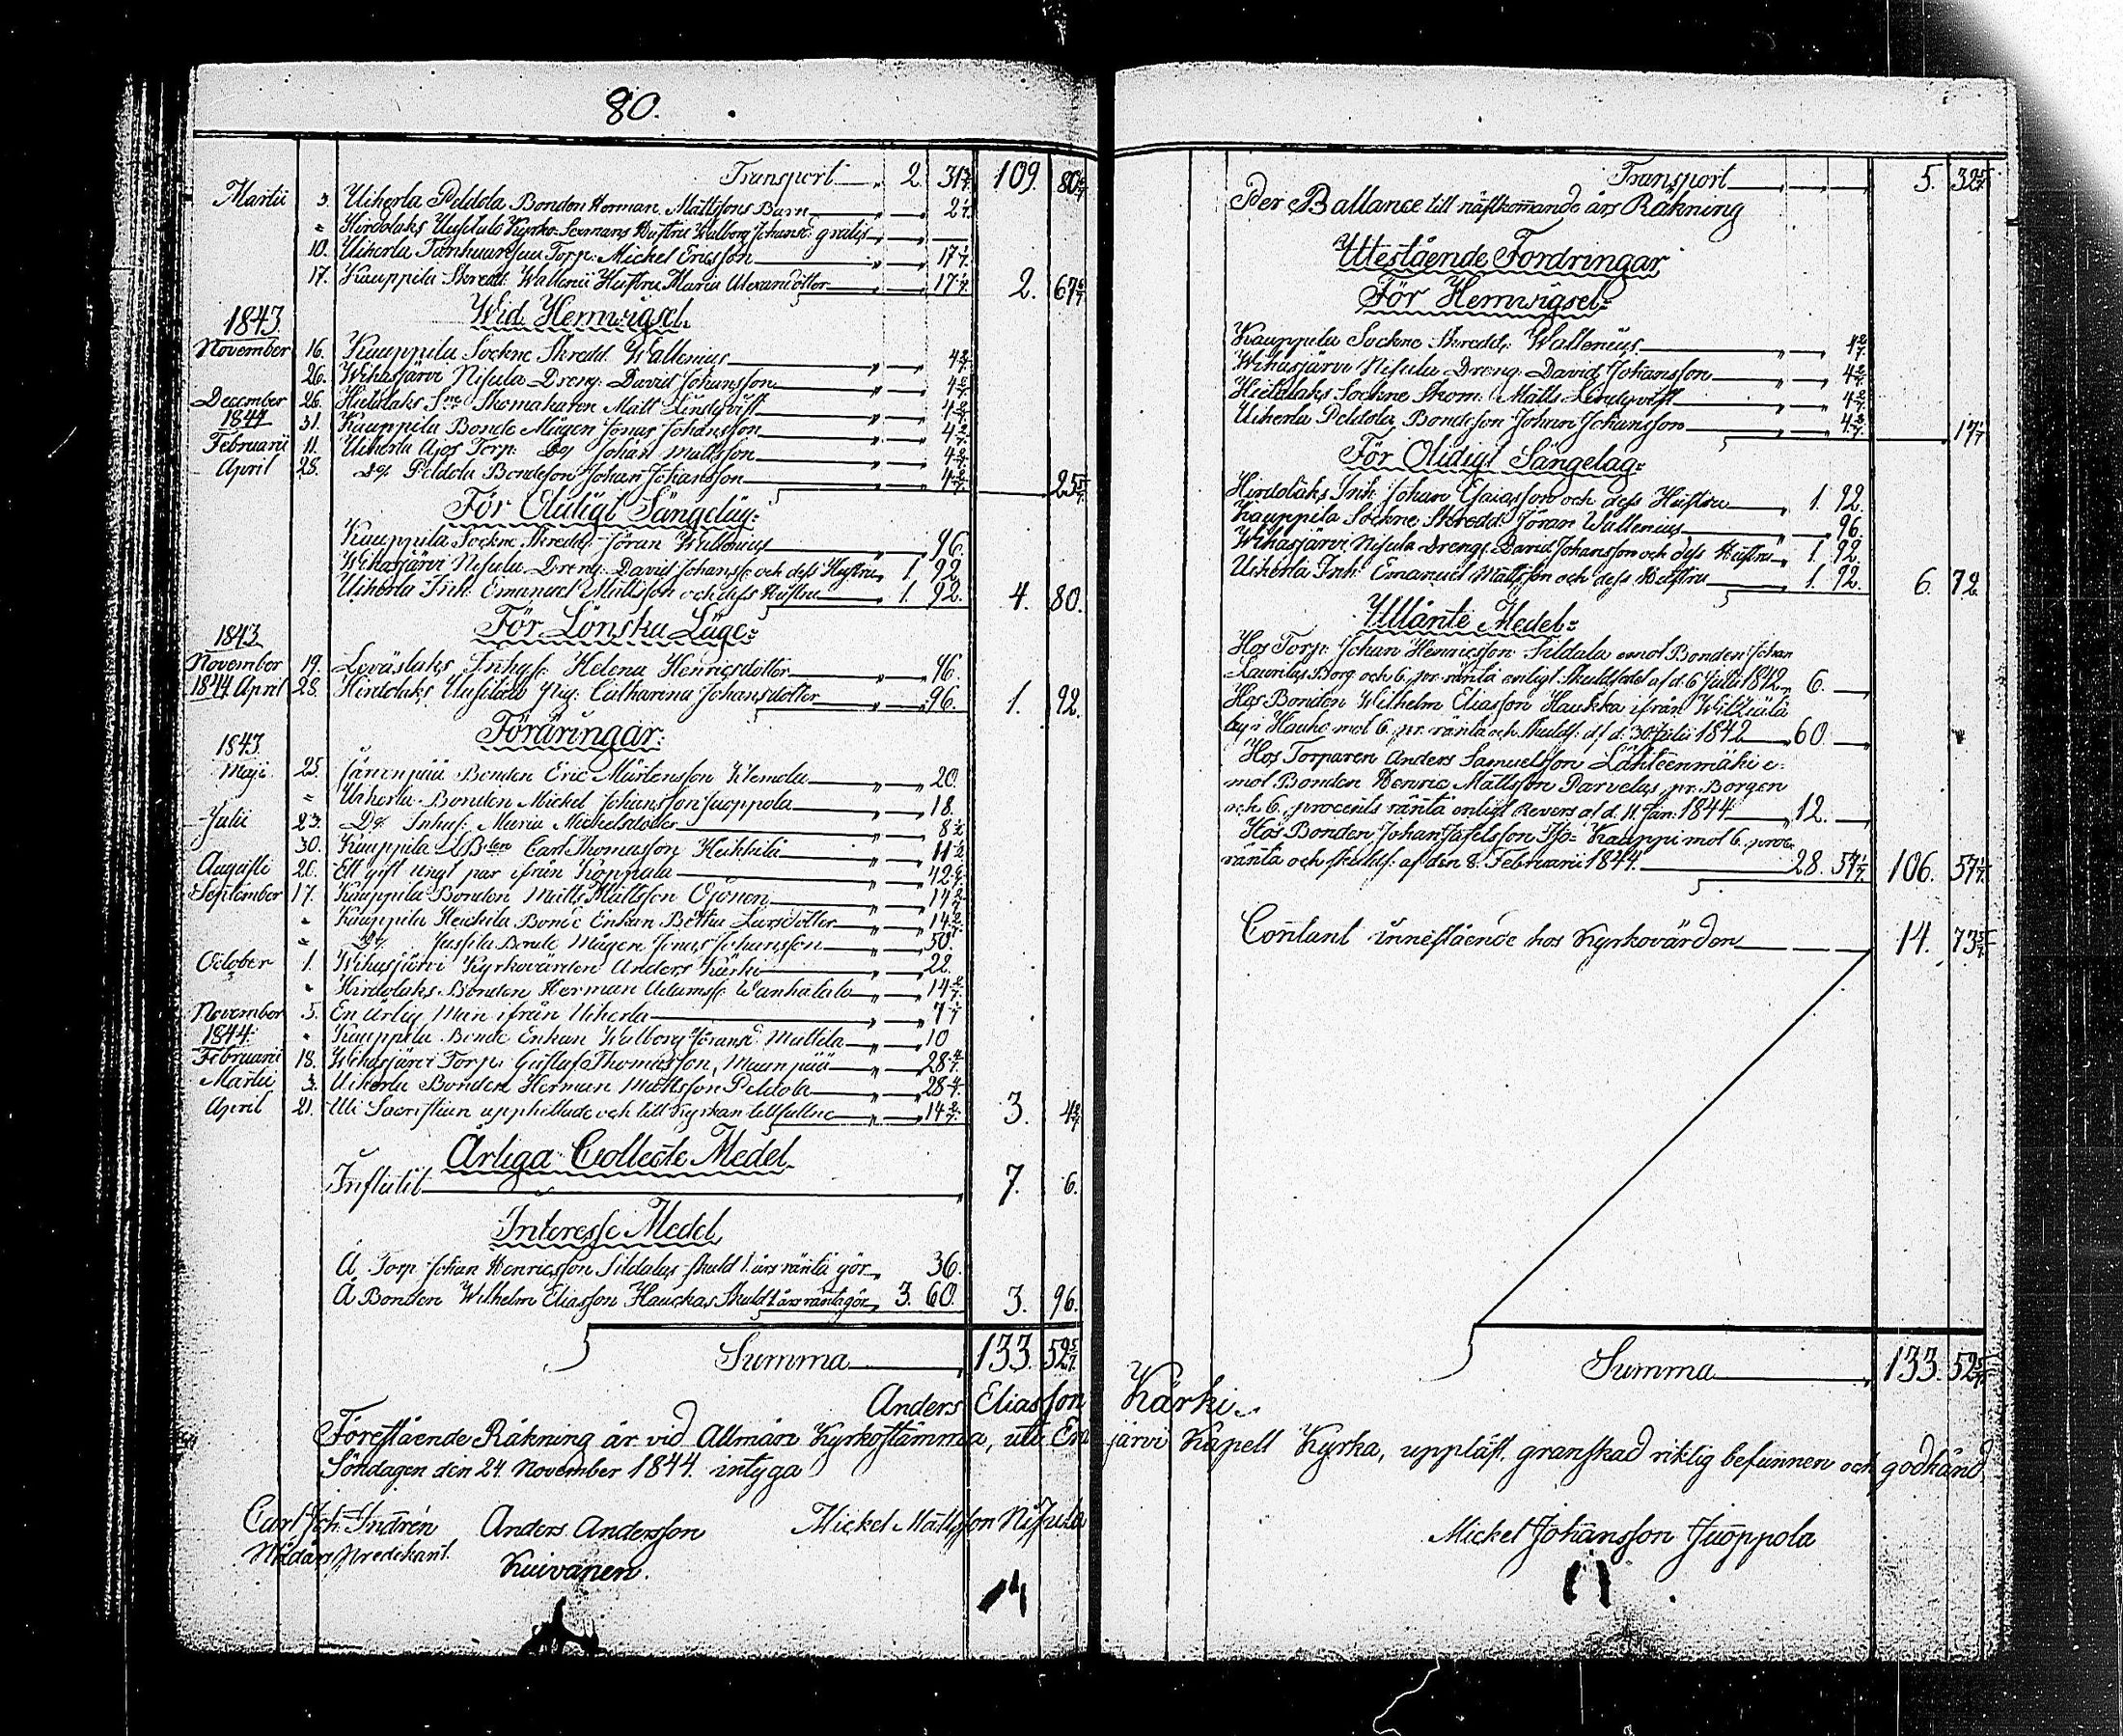 80.
Transport 2. 31 3/7 109. 80 6/7
Martii 3. Uiherla Peldola Bonden Herman Mattssons Barn 2 1/7
" Hirdolaks Uusitalo Kyrko-Sexmans Hustru Walborg Johansd: gratis
10. Uiherla Torp: Michel Ericsson 17 1/7
17. Kauppila Skredd: Wallenii Hustru Maria Alexandsdotter 17 1/7 2. 67 6/7
Wid Hemwigsel.
1843.
November 16. Kauppila Sockne Skredd. Wallenius 4 2/7
26. Wihasjärvi Nisula Dreng: David Johansson 4 2/7
December 26. Hietalaks Sne Skomakaren Matt Lindqvist 4 2/7
1844 31. Kauppila Bonde Mågen Jonas Johansson 4 2/7
Februarii 11. Uiherla Ajos Torp: Do Johan Mattsson 4 2/7
April 28. Do Peldola Bondeson Johan Johansson 4 2/7 25 5/7
För Otidigt Sängelag:
Kauppila Sockne Skredd: Jöran Wallenius 96.
Wihasjärvi Nisula Dreng: David Johanss: och dess Hustru 1. 92
Uiherla Inh: Emanuel Mattsson och dess Hustru 1. 92. 4. 80.
För Lönska Läge:
1843.
November 19. Leväslaks Inhys: Helena Henricsdotter 96.
1844 April 28. Hirdolaks Uusitalo Pig: Catharina Johansdotter 96. 1. 92.
Föräringar:
1843.
Maji 25. Bonden Eric Mårtensson Klemola 20.
" Uiherla Bonden Mickel Johansson Juoppola 18.
Julii 23. Do Inhys: Maria Michelsdotter 8 4/7
30. Kauppila Bden Carl Thomasson Heikkilä 11
Augusti 20. Ett gift ungt par ifrån Koppala 42 6/7
September 17. Kauppila Bonden Matts Mattsson Ojonen 14 2/7
" Kauppila Heickilä Bonde Enkan Betha Larsdotter 14 2/7
" Do Jussila Bonde Mågen Jonas Johansson 50.
October 1. Wihasjärvi Kyrkovärden Anders Kärki 22.
" Hirdolaks Bonden Herman Adamss: Wanhatalo 14 2/7
November 5. En ärlig Man ifrån Uiherla 7 1/7
1844. " Kauppila Bonde Enkan Walborg Jöransd: Mattila 10
Februarii 18. Wihasjärvi Torp: Gustaf Thomasson, Maunpää 28 4/7
Martii 3. Uiherla Bonden Herman Mattsson Peldola 28 4/7
April 21. Uti Sacristian upphittade och till Kyrkan tillfallne 14 2/7 3. 4 2/7
Årliga Collecte Medel.
Influtit 7. 6.
Interesse Medel,
Å Torp: Johan Henricsson Sildalas skuld 1. års ränta gör 36.
Å Bonden Wilhelm Eliasson Hauckas Skuld 1 års ränta gör 3. 60. 3. 96.
Summa 133. 52 5/7
Transport 5. 32 5/7
Per Ballance till nästkommande års Räkning
Utestående Fordringar
För Hemwigsel:
Kauppila Sockne Skredd: Wallenius 4 2/7
Wihasjärvi Nisula Dreng: David Johansson 4 2/7
Hietalaks Sockne Skom: Matts Lindqvist 4 2/7
Uiherla Peldola Bondeson Johan Johansson 4 2/7 17 1/7
För Otidigt Sängelag:
Hirdolaks Inh: Johan Esaiasson och dess Hustru 1. 92.
Kauppila Sockne Skredd: Jöran Wallenius 96.
Wihasjärvi Nisula Dreng: David Johansson och dess Hustru 1. 92.
Uiherla Inh: Emanuel Mattsson och dess Hustru 1. 92. 6. 72
Utlänte Medel:
Hos Torp: Johan Henricsson Sildala emot Bonden Johan
Laurilas Borg. och 6. pr. ränta enligt Skuldsedel af d. 6 Julii 1842 6.
Hos Bonden Wilhelm Eliasson Haukka ifrån
by i Hauho mot 6. pr. ränta och skulds: af d. 30 Julii 1842 60.
Hos Torparen Anders Samuelsson Lähteenmäki e-
mot Bonden Henric Mattsson Parvelas pr. Borgen
och 6. procents ränta enligt Revers af d. 11 Jan: 1844 12.
Hos Bonden Johan Kauppi mot 6. proc:
ränta och skulds: af den 8. Februarii 1844. 28. 57 1/7 106. 57 1/7
Contant inneslående hos Kyrkovärden 14. 73 5/7
Summa 133. 52 5/7
Anders Eliasson Kärki.
Föreslående Räkning är vid Allmän Kyrkostämma, uti Eräjärvi Kapell Kyrka, uppläst, granskad riktig befunnen och godkänd
Söndagen den 24. November 1844. intyga
Carl Joh: Indrén Anders Andersson Mickel Mattsson Nisula Mickel Johansson Juoppola
Nådårs predikant. Kuivanen.